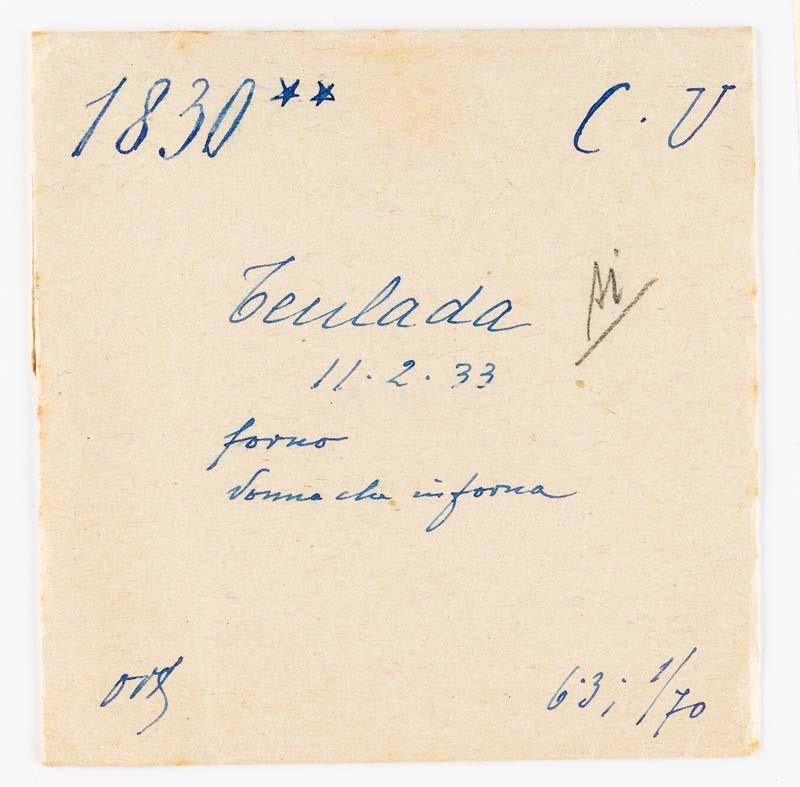 1830**
C. U
Teulada
si
11.2.33
forno
donna che inforna
6.3; 1/70